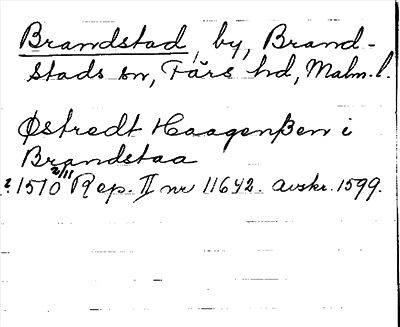 Brandstad, by, Brand-
stads sn, Färs hd, Malm. l.
Østredt Haagenßen i
Brandstaa
2/11
1510 Rep. II nr 11642. avskr. 1599.